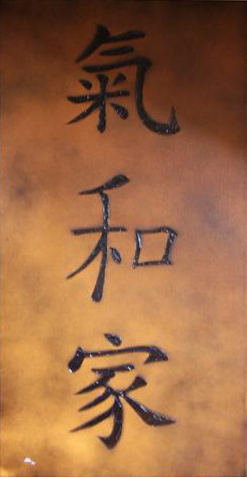 氣和家